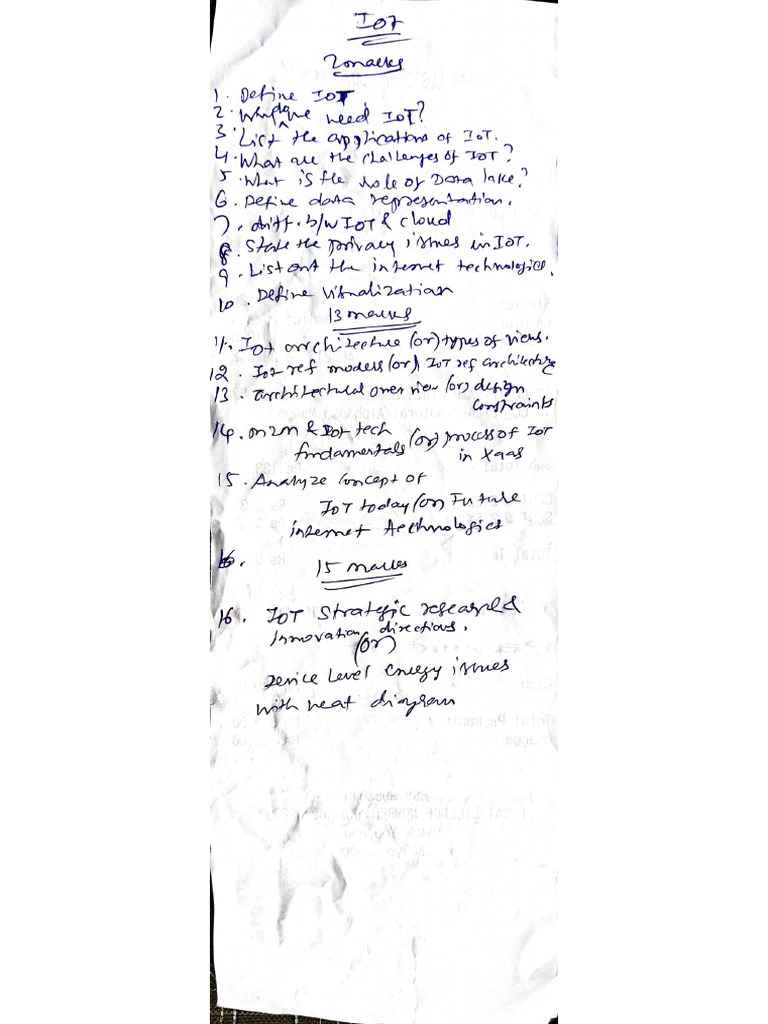 IOT
2 marks
1. Define IOT
2. Why do we need IOT?
3. List the applications of IOT.
4. What are the challenges of IOT?
5. What is the role of Data lake?
6. Define data representation.
7. diff. b/w IOT & cloud
8. State the privacy issues in IOT.
9. List out the internet technologies.
10. Define visualization
13 marks
11. IOT architecture (or) types of views.
12. IOT ref models (or) IOT ref architecture
13. architectural over view (or) design
constraints
14. M2M & IOT tech
fundamentals (or) process of IOT
in Xaas
15. Analyze concept of
IOT today (or) Future
internet Technologies
16.
15 marks
16. IOT Strategic research &
innovation directions.
(or)
Device Level energy issues
with neat diagram